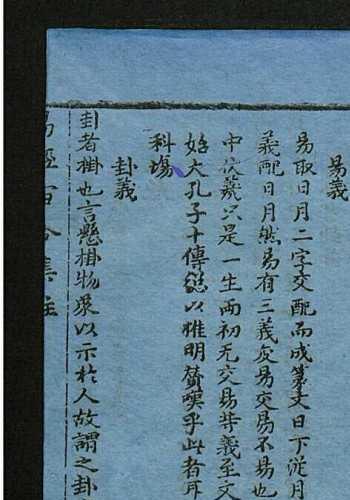 易義
易取日月二字交配而成篆文日下從月
義配日月然易有三義交易変易不易也
中伏羲只是一生兩初无交易等義至文
始大孔子十傳以推明賛嘆乎此者耳
科場
卦義
卦者掛也言懸掛物象以示於人故謂之卦